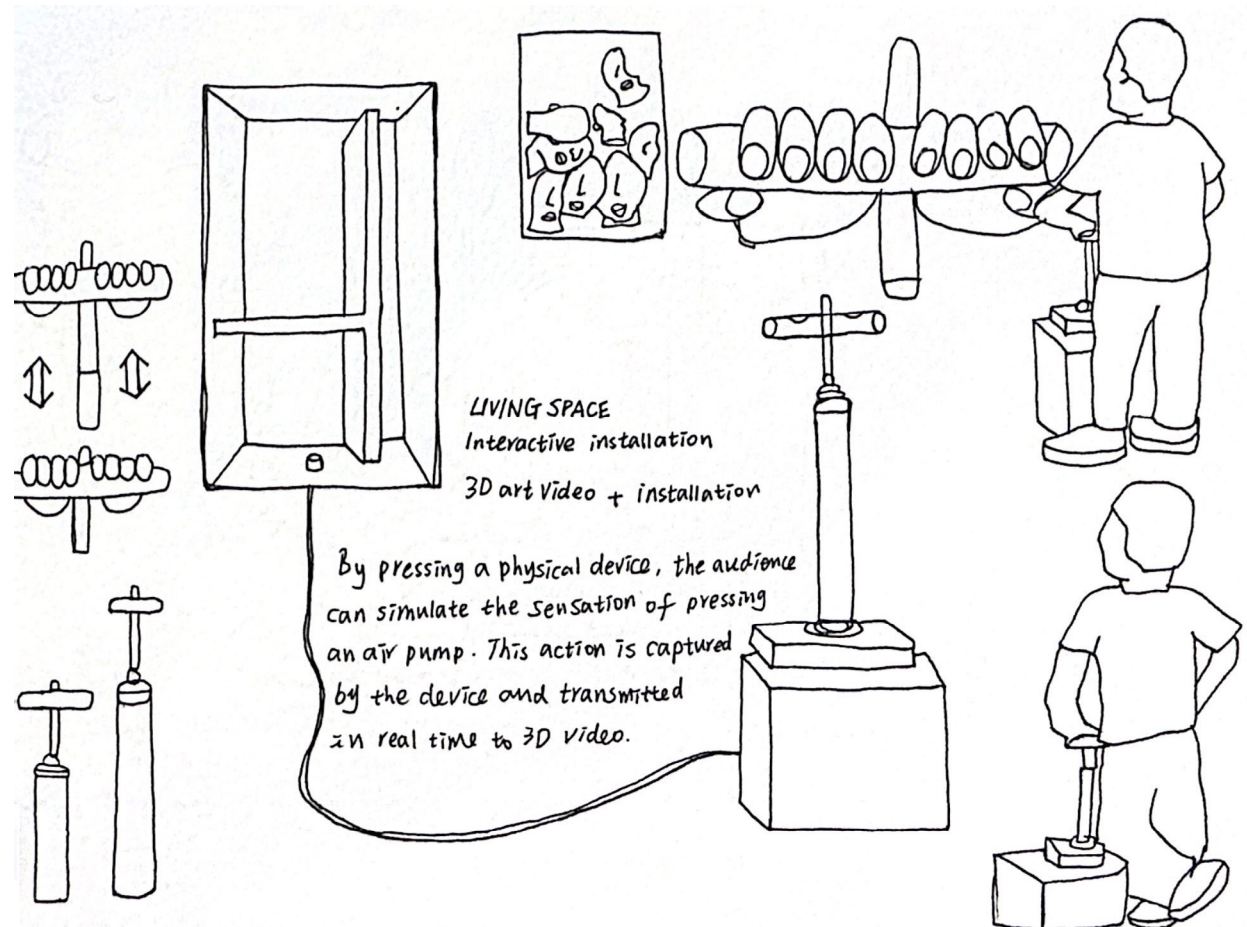 LIVING SPACE
Interactive installation
3D art Video + installation
By pressing a physical device, the audience
can simulate the sensation of pressing
an air pump. This action is captured
by the device and transmitted
in real time to 3D video.